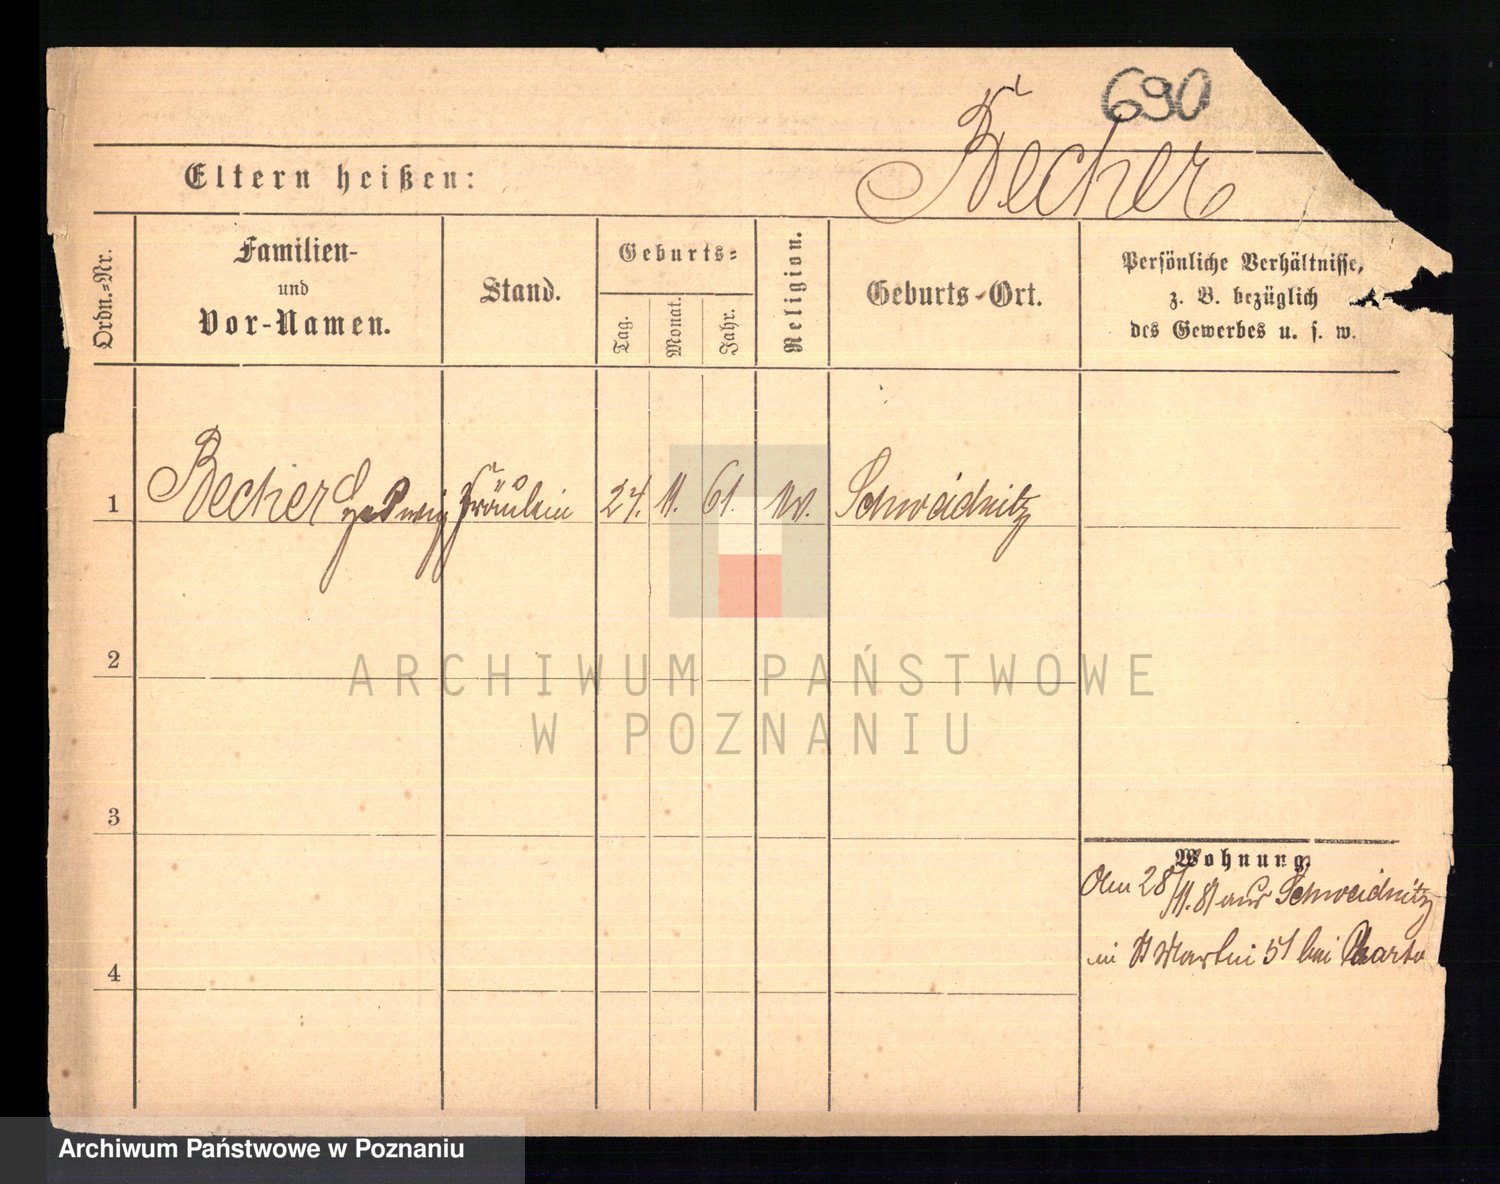 690
Becher
Eltern heißen:
Ordn.-Nr.
Familien-
und
Vor-Namen.
Stand.
Geburts-
Tag.
Monat.
Jahr.
Religion.
Geburts-Ort.
Persönliche Verhältnisse,
z. B. bezüglich
des Gewerbes u. s. w.
1 Becher Hedwig Fräulein 24. 11. 61. Schweidnitz
2
3
4
Wohnung.
Am 28/11. 81 aus Schweidnitz
in St Martin 51 bei
ARCHIWUM PAŃSTWOWE
W POZNANIU
Archiwum Państwowe w Poznaniu